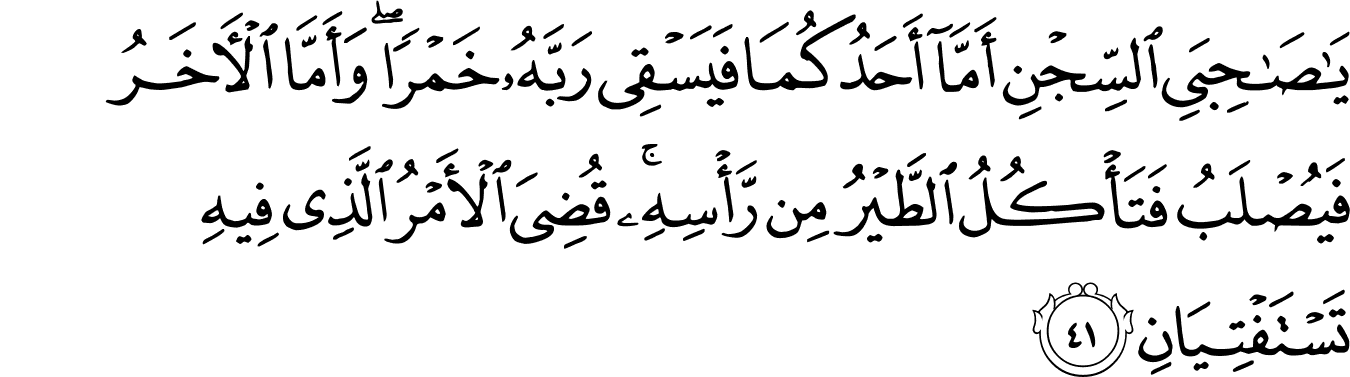 يَٰصَٰحِبَىِ ٱلسِّجْنِ أَمَّآ أَحَدُكُمَا فَيَسْقِى رَبَّهُۥ خَمْرًا ۖ وَأَمَّا ٱلْأَخَرُ
فَيُصْلَبُ فَتَأْكُلُ ٱلطَّيْرُ مِن رَّأْسِهِۦ ۚ قُضِىَ ٱلْأَمْرُ ٱلَّذِى فِيهِ
تَسْتَفْتِيَانِ ٤١